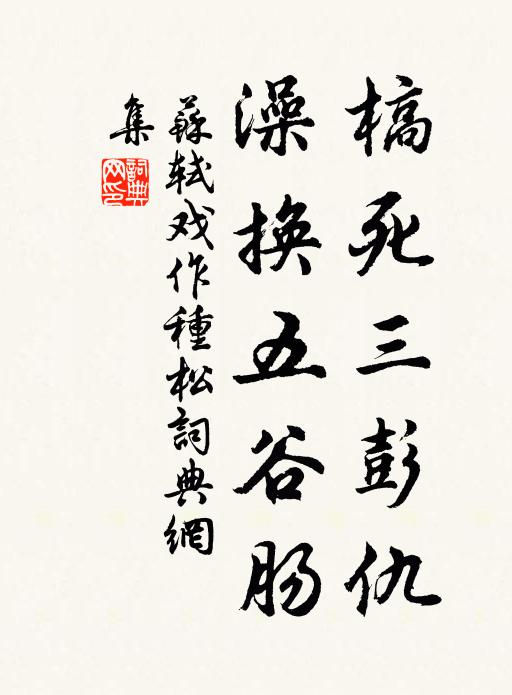 槁死三彭仇
澡換五谷肠
蘇轼戏作種松詞典網
集
詞典
网印